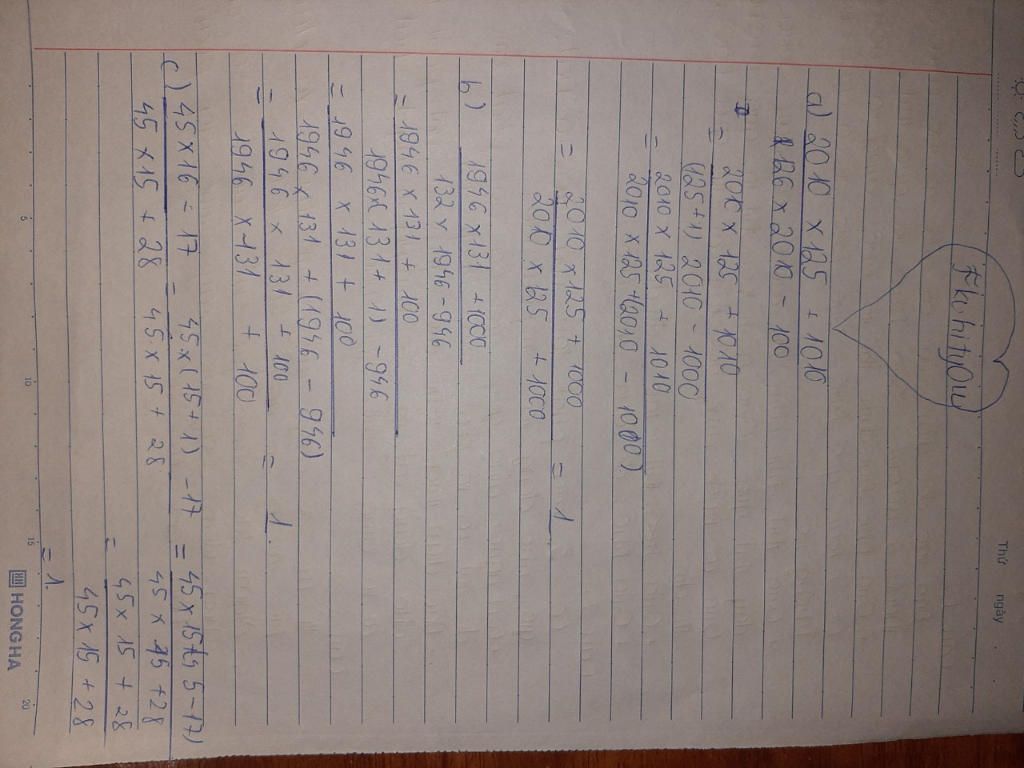 Thứ ngày
a) 2010 × 125 + 1010
126 × 2010 - 100
= 2010 × 125 + 1010
(125+1) 2010 - 1000
= 2010 × 125 + 1010
2010 × 125 + (2010 - 1000)
= 2010 × 125 + 1000 = 1
2010 × 125 + 1000
b) 1946 × 131 + 1000
132 × 1946 - 946
= 1946 × 131 + 100
1946 × (131 + 1) - 946
= 1946 × 131 + 100
1946 × 131 + (1946 - 946)
= 1946 × 131 + 100 = 1.
1946 × 131 + 100
c) 45 × 16 - 17 = 45 × (15 + 1) - 17 = 45 × 15 + (45 - 17)
45 × 15 + 28 45 × 15 + 28 45 × 15 + 28
= 45 × 15 + 28
45 × 15 + 28
= 1.
5 10 15 20
HONG HA